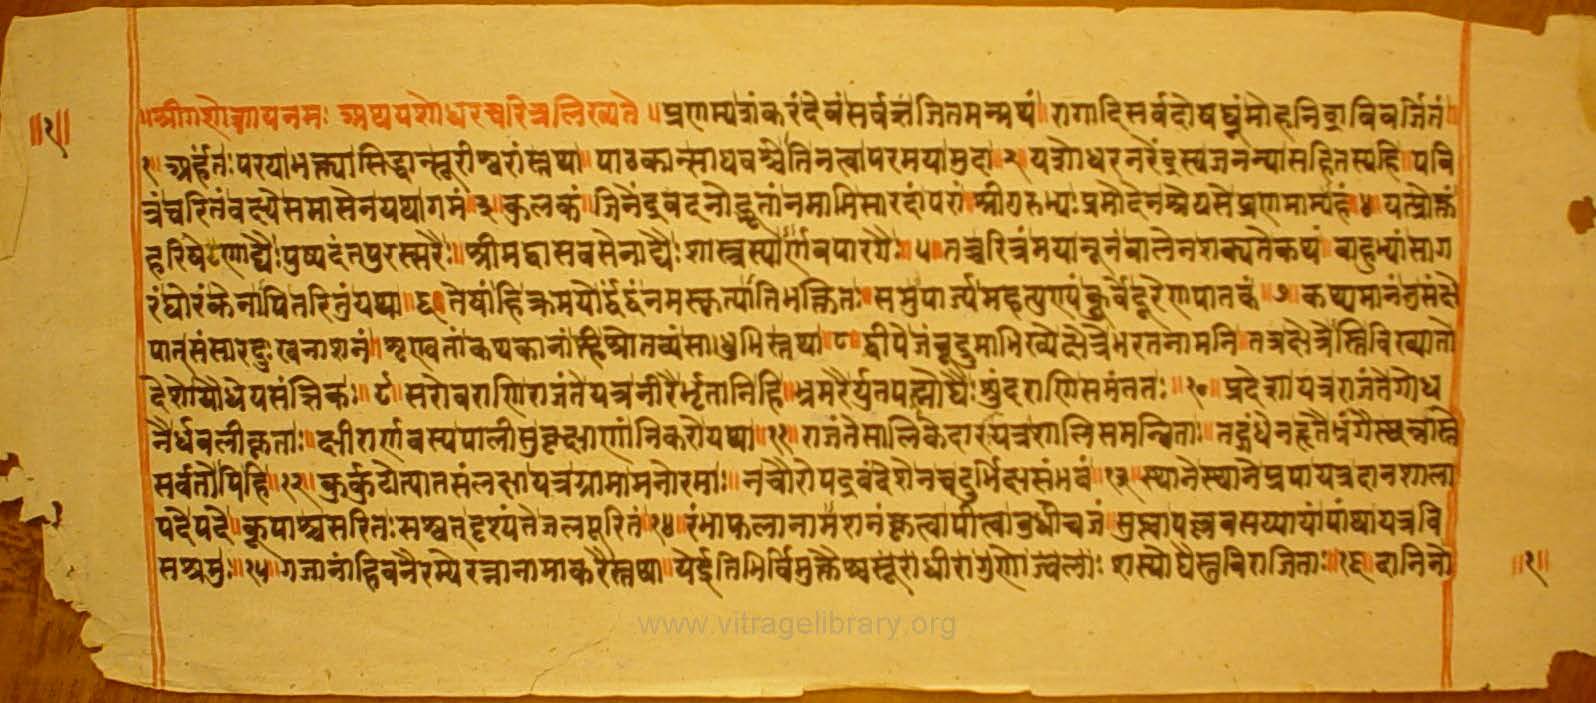 ॥श्रीगणेशायनमः अथयशोधरचरित्रलिख्यते ॥ प्रणम्यशंकरंदेवंसर्वज्ञंजितमन्मथं॥ रागादिसर्वदोषघ्नंमोहनिद्राविवर्जितं॥
१॥ अर्हतःपरयाभक्त्यासिद्धान्सूरीश्वरांस्तथा॥ पाठकान्साधवश्चेतिनत्वापरमयामुदा॥२॥ यशोधरनरेंद्रस्यजनन्यासहितस्यहि॥ पवि
त्रंचरितंवक्ष्येसमासेनयथागमं॥३॥ कुलकं॥ जिनेंद्रवदनोद्भूतांनमामिसारदांपरां॥ श्रीगुरुभ्यःप्रमोदेनश्रेयसेप्रणमाम्यहं॥४॥ यत्प्रोक्तं
हरिषेणाद्यैःपुष्पदंतपुरस्सरैः॥ श्रीमद्वासवसेनाद्यैःशास्त्रस्यार्णवपारगैः॥५॥ तच्चरित्रंमयानूनंबालेनशक्यतेकथं॥ बाहुभ्यांसाग
रंघोरंकेनापितरितुंयथा॥६॥ तेषांहिक्रमयोर्द्वंद्वंनमस्कृत्यातिभक्तितः॥ समुपार्ज्यमहत्पुण्यंकुर्वेदूरेणपातकं॥७॥ कथ्यमानंतुसंक्षे
पातसंसारदुःखनाशनं॥ शृण्वतांकथकानांहिश्रोतव्यंसाधुभिस्तथा॥८॥ द्वीपेजंबूद्रुमाभिख्येक्षेत्रेभरतनामनि॥ तत्रक्षेत्रेस्तिविख्यातो
देशोयौधेयसंज्ञिकः॥९॥ सरोवराणिराजंतेयत्रनीरैर्भृतानिहि॥ भ्रमरैर्युतपद्मौघैःसुंदराणिसमंततः॥१०॥ प्रदेशायत्रराजंतेगोध
नैर्धवलीकृताः॥ क्षीरार्णवस्यपालीमुक्लक्षाणांनिकरोयथा॥११॥ राजंतेसालिकेदारायत्रशालिसमन्विताः॥ तद्गंधेनहृतैर्भृंगैस्थ
सर्वतोपिहि॥१२॥ कुर्कुटोत्पातसंलक्षायत्रग्रामामनोरमाः॥ नचौरोपद्रवंदेशेनचदुर्भिक्षसंभवं॥१३॥ स्थानेस्थानेप्रपायत्रदानशाला
पदेपदे॥ कूपाश्चसरितःसश्वतदृश्यंतेजलपूरितं॥१४॥ रंभाफलानामशनंकृत्वापीत्वाबुधीचजं॥ सुप्त्वापल्लवसय्यायांपांथायत्रवि
सश्रमुः॥१५॥ गजानांहिवनैरम्यैरत्नानामाकरैस्तथा॥ येईतिभिर्विमुक्तैश्चसूराधीरागुणोज्वलाः शस्यौघैस्तुविराजिताः॥१६॥ दानिनो
॥१॥
॥१॥
www.vitragelibrary.org